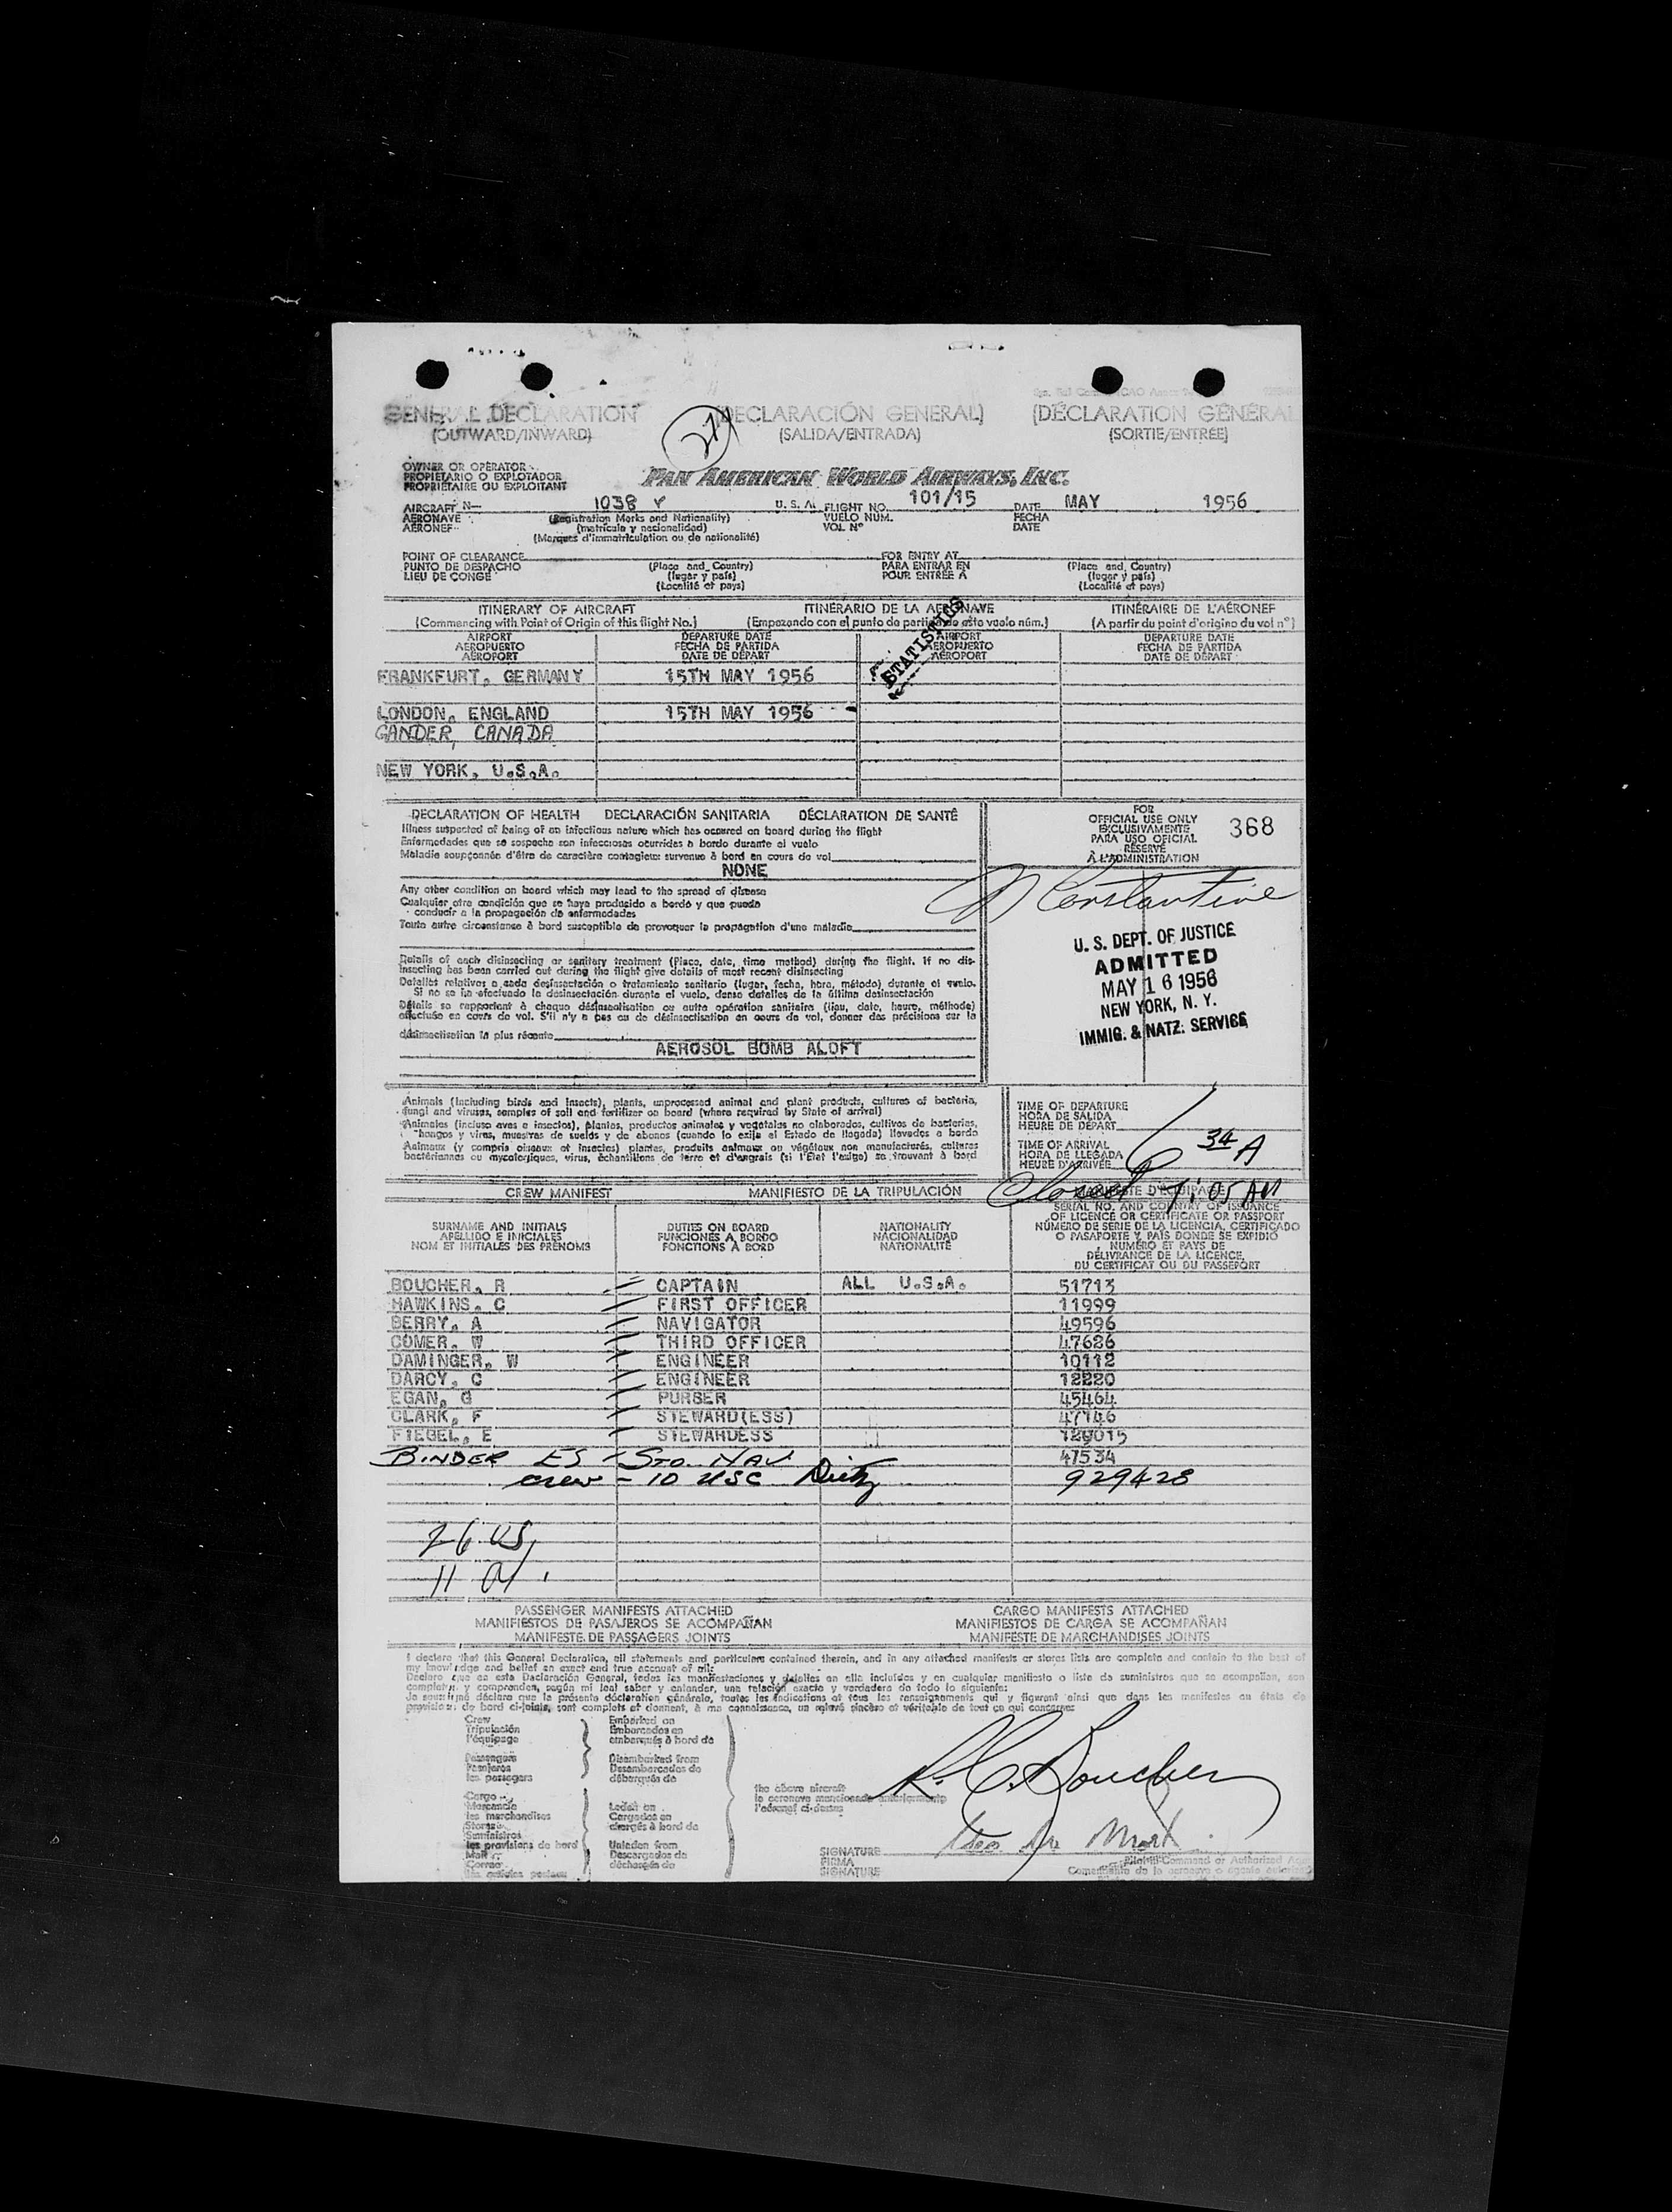 GENERAL DECLARATION (DECLARACIÓN GENERAL) (DÉCLARATION GÉNÉRAL
(OUTWARD/INWARD) (SALIDA/ENTRADA) (SORTIE/ENTRÉE)
OWNER OR OPERATOR
PROPIETARIO O EXPLOTADOR
PROPRIÉTAIRE OU EXPLOITANT
PAN AMERICAN WORLD AIRWAYS, INC.
AIRCRAFT N— 1038 V U. S. A. FLIGHT NO. 101/15 DATE MAY 1956
AERONAVE (Registration Marks and Nationality) VUELO NUM. FECHA
AÉRONEF (matrícula y nacionalidad) VOL Nº DATE
(Marques d'immatriculation ou de nationalité)
POINT OF CLEARANCE FOR ENTRY AT
PUNTO DE DESPACHO (Place and Country) PARA ENTRAR EN (Place and Country)
LIEU DE CONGÉ (lugar y país) POUR ENTRÉE A (lugar y país)
(Localité et pays) (Localité et pays)
ITINERARY OF AIRCRAFT ITINERARIO DE LA AERONAVE ITINÉRAIRE DE L'AÉRONEF
(Commencing with Point of Origin of this flight No.) (Empezando con el punto de partida de este vuelo núm.) (A partir du point d'origine du vol nº)
STATISTICS
AIRPORT DEPARTURE DATE AIRPORT DEPARTURE DATE
AEROPUERTO FECHA DE PARTIDA AEROPUERTO FECHA DE PARTIDA
AÉROPORT DATE DE DÉPART AÉROPORT DATE DE DÉPART
FRANKFURT, GERMANY 15TH MAY 1956
LONDON, ENGLAND 15TH MAY 1956
GANDER, CANADA
NEW YORK, U.S.A.
DECLARATION OF HEALTH DECLARACIÓN SANITARIA DÉCLARATION DE SANTÉ
Illness suspected of being of an infectious nature which has occured on board during the flight
Enfermedades que se sospecha son infecciosas ocurridas a bordo durante el vuelo
Maladie soupçonnée d'être de caractère contagieux survenue à bord en cours de vol
NONE
Any other condition on board which may lead to the spread of disease
Cualquier otra condición que se haya producido a bordo y que pueda
conducir a la propagación de enfermedades
Toute autre circonstance à bord susceptible de provoquer la propagation d'une maladie
Details of each disinsecting or sanitary treatment (Place, date, time method) during the flight. If no dis-
insecting has been carried out during the flight give details of most recent disinsecting
Detalles relativos a cada desinsectación o tratamiento sanitario (lugar, fecha, hora, método) durante el vuelo.
Si no se ha efectuado la desinsectación durante el vuelo, dense detalles de la última desinsectación
Détails se rapportant à chaque désinsectisation ou autre opération sanitaire (lieu, date, heure, méthode)
effectuée en cours de vol. S'il n'y a pas eu de désinsectisation en cours de vol, donner des précisions sur la
désinsectisation la plus récente
AEROSOL BOMB ALOFT
FOR
OFFICIAL USE ONLY
EXCLUSIVAMENTE
PARA USO OFICIAL
RÉSERVÉ
À L'ADMINISTRATION
368
Constantine
U. S. DEPT. OF JUSTICE
ADMITTED
MAY 16 1956
NEW YORK, N. Y.
IMMIG. & NATZ. SERVICE
Animals (Including birds and insects), plants, unprocessed animal and plant products, cultures of bacteria,
fungi and viruses, samples of soil and fertilizer on board (where required by State of arrival)
Animales (incluso aves e insectos), plantas, productos animales y vegetales no elaborados, cultivos de bacterias,
hongos y virus, muestras de suelos y de abonos (cuando lo exija el Estado de llegada) llevados a bordo
Animaux (y compris oiseaux et insectes) plantes, produits animaux ou végétaux non manufacturés, cultures
bactériennes ou mycologiques, virus, échantillons de terre et d'engrais (si l'État l'exige) se trouvant à bord
TIME OF DEPARTURE
HORA DE SALIDA
HEURE DE DÉPART
TIME OF ARRIVAL
HORA DE LLEGADA
HEURE D'ARRIVÉE
6 34 A
Closed 7:05 AM
CREW MANIFEST MANIFIESTO DE LA TRIPULACIÓN MANIFESTE D'ÉQUIPAGE
SURNAME AND INITIALS
APELLIDO E INICIALES
NOM ET INITIALES DES PRÉNOMS
DUTIES ON BOARD
FUNCIONES A BORDO
FONCTIONS À BORD
NATIONALITY
NACIONALIDAD
NATIONALITÉ
SERIAL NO. AND COUNTRY OF ISSUANCE
OF LICENCE OR CERTIFICATE OR PASSPORT
NÚMERO DE SERIE DE LA LICENCIA, CERTIFICADO
O PASAPORTE Y PAIS DONDE SE EXPIDIÓ
NUMÉRO ET PAYS DE
DÉLIVRANCE DE LA LICENCE,
DU CERTIFICAT OU DU PASSEPORT
BOUCHER, R CAPTAIN ALL U.S.A. 51713
HAWKINS, C FIRST OFFICER 11999
BERRY, A NAVIGATOR 49596
COMER, W THIRD OFFICER 47626
DAMINGER, W ENGINEER 10112
DARCY, C ENGINEER 12220
EGAN, G PURSER 45464
CLARK, F STEWARD(ESS) 47146
FIEGEL, E STEWARDESS 129015
BINDER ES STO. NAV 47534
crew - 10 USC 929428
26 US
11
PASSENGER MANIFESTS ATTACHED CARGO MANIFESTS ATTACHED
MANIFIESTOS DE PASAJEROS SE ACOMPAÑAN MANIFIESTOS DE CARGA SE ACOMPAÑAN
MANIFESTE DE PASSAGERS JOINTS MANIFESTE DE MARCHANDISES JOINTS
I declare that this General Declaration, all statements and particulars contained therein, and in any attached manifests or stores lists are complete and contain to the best of
my knowledge and belief an exact and true account of all:
Declaro que en esta Declaración General, todas las manifestaciones y detalles en ella incluidos y en cualquier manifiesto o lista de suministros que se acompañan, son
completos y comprenden, según mi leal saber y entender, una relación exacta y verdadera de todo lo siguiente:
Je soussigné déclare que la présente déclaration générale, toutes les indications et tous les renseignements qui y figurent ainsi que dans les manifestes ou états de
provisions de bord ci-joints, sont complets et donnent, à ma connaissance, un relevé sincère et véritable de tout ce qui concerne:
Crew
Tripulación
l'équipage
Passengers
Pasajeros
les passagers
Cargo
Mercancía
les marchandises
Stores
Suministros
les provisions de bord
Mail
Correo
Embarked on
Embarcados en
embarqués à bord de
Disembarked from
Desembarcados de
débarqués de
Laden on
Cargados en
chargés à bord de
Unladen from
Descargados de
déchargés de
the above aircraft
la aeronave mencionada anteriormente
l'aéronef ci-dessus
R. C. Boucher
SIGNATURE
FIRMA
SIGNATURE
Pilot in Command or Authorized